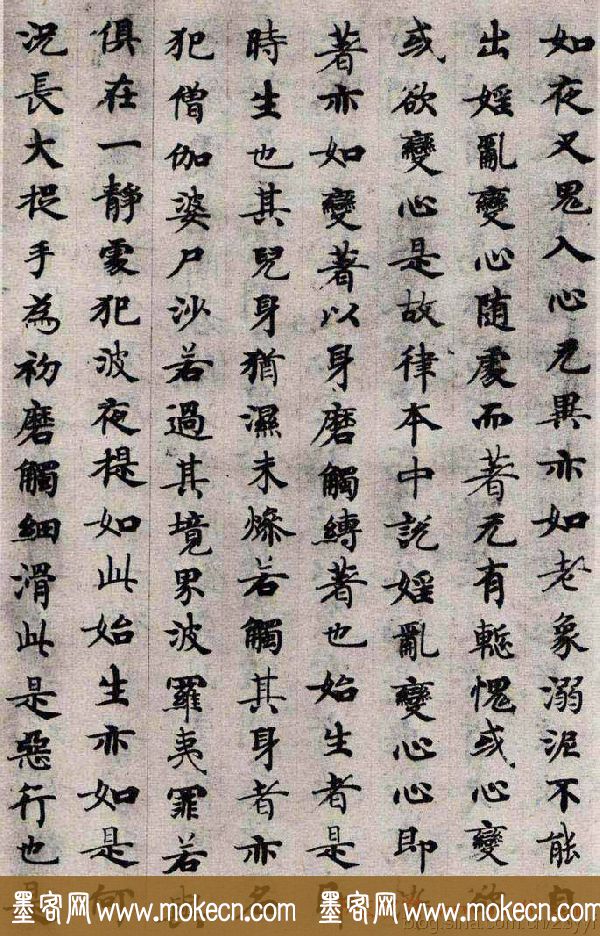 如夜叉鬼入心无異亦如老象溺泥不能
出婬亂變心随處而著无有慙愧或心變
或欲變心是故律本中說婬亂變心心即
著亦如變著以身磨觸縛著也始生者是
時生也其兒身猶濕未燥若觸其身者亦
犯僧伽婆尸沙若過其境界波羅夷罪若
俱在一靜處犯波夜提如此始生亦如是
況長大捉手為初磨觸細滑此是惡行也
墨客网 www.mokecn.com 墨客网 www.mokecn.com 墨客网 www.mokecn.com